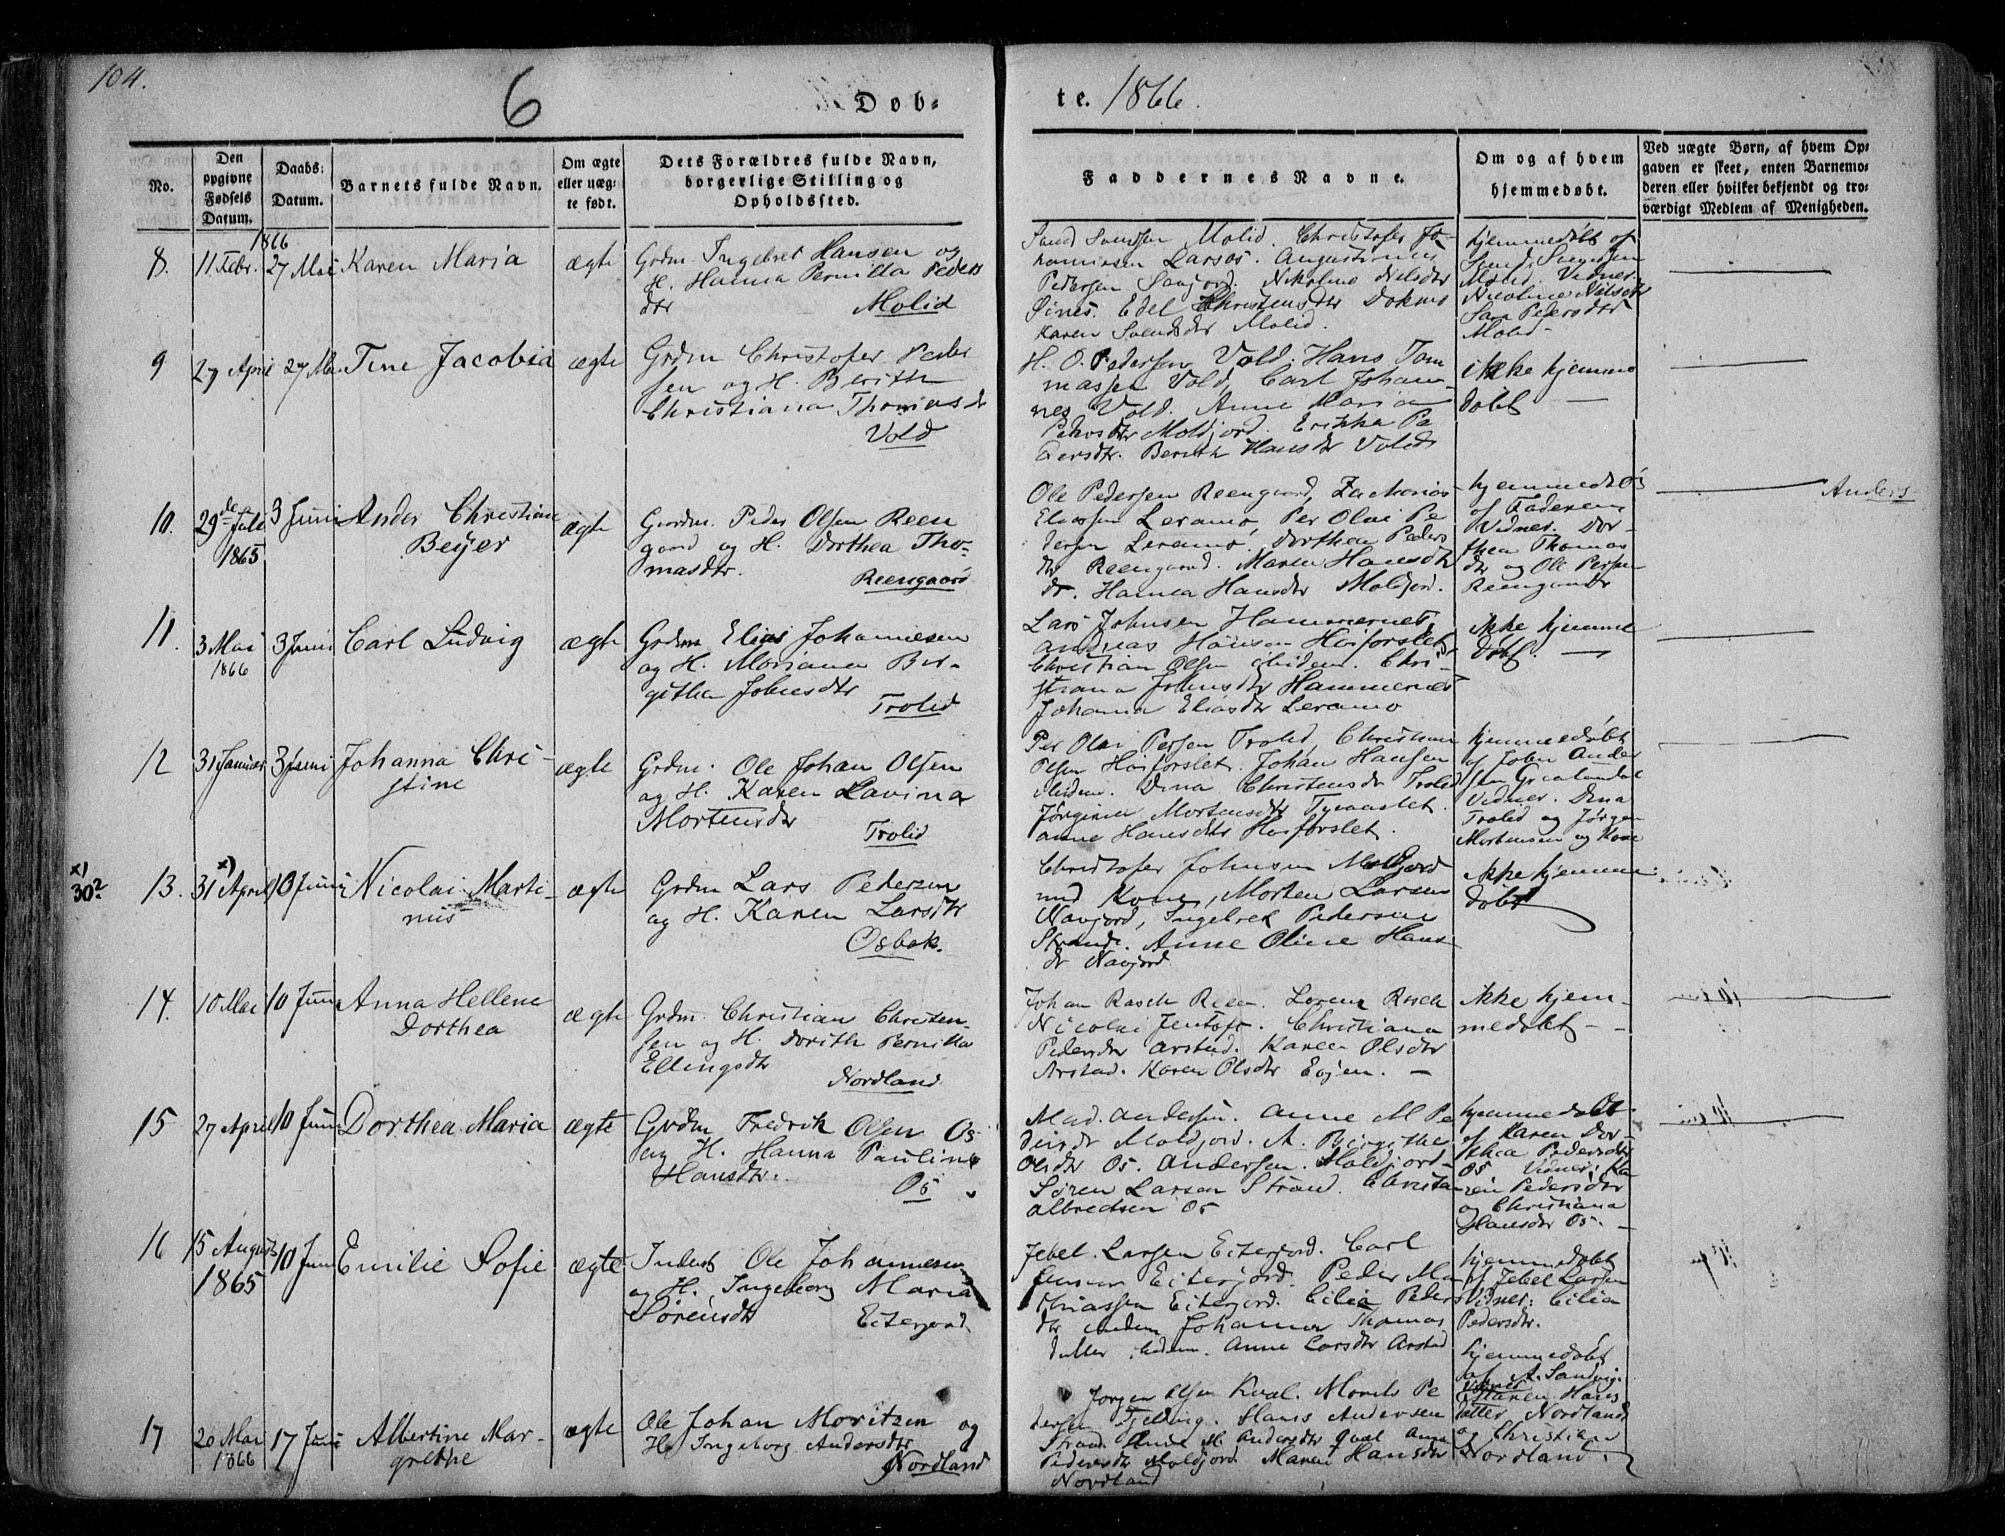 104.
6
Døb-
te. 1866.
No.
Den opgivne Fødsels Datum.
Daabs-Datum.
Barnets fulde Navn.
Om ægte eller uægte født.
Dets Forældres fulde Navn, borgerlige Stilling og Opholdssted.
Faddernes Navne.
Om og af hvem hjemmedøbt.
Ved uægte Børn, af hvem Opgaven er skeet, enten Barnemoderen eller hvilket bekjendt og troværdigt Medlem af Menigheden.
1866
8. 11 Febr. 27 Mai Karen Maria ægte
Grdm. Ingebret Hansen og
H. Hanna Pernilla Peders
dtr
Molid
Svend Svensen Molid. Christofer Jo-
hannesen Larsos. Augustinus
Pedersen Savjord. Nikoline Nilsdtr
Øines. Edel Christensdtr Dokmo
Karen Svendsdtr Molid.
hjemmedøbt af
Svend Svendsen
Molid. Vidner.
Nicoline Nilsdtr
Sara Pedersdtr
Molid-
9 27 April 27 Mai Tine Jacobia ægte
Grdm Christofer Peder
sen og H. Berith
Christiana Thomasdr
Vold
H. O. Pedersen Vold. Hans Tom
massen Vold, Carl Johan-
nes Vold. Anne Maria
Pedersdtr Moldjord. Erikka Pe
dersdtr. Berith Hansdtr Vold
ikke hjemme
døbt —
10. 29de Juli 1865 3 Juni Ander Christian
Beyer
ægte
Gaardm. Peder Olsen Reen
gaard og H. Dorthea Tho-
masdtr.
Reengaard
Ole Pedersen Reengaard, Zacharias
Eliassen Leramo, Per Olai Pe
dersen Leramo. Dorthea Peders
dtr Reengaard. Maren Hansdtr
do. Hanna Hansdtr Moldjord.
hjemmedøbt
af Faderen
Vidner. Dor-
thea Thomas
dtr og Ole Persen
Reengaard
Anders
11. 3 Mai 1866 3 Juni Carl Ludvig ægte
Grdm Elias Johannesen
og H. Mariana Bir-
githa Johnsdtr
Trolid
Lars Johnsen Hammernes,
Andreas Hansen Hosforslet
Christian Olsen ibidem. Chri-
stiana Johnsdtr Hammernes
Johanna Eliasdtr Leramo
ikke hjemme
døbt. —
12 31 Januar 3 Juni Johanna Chri-
stine
ægte
Grdm. Ole Johan Olsen
og H. Karen Lavina
Mortensdtr
Trolid
Per Olai Persen Trolid, Christian
Olsen Hosforslet. Johan Hansen
ibidem. Dina Christensdtr Trolid
Jørginia Mortensdtr
Anne Hansdtr Hosforslet.
hjemmedøbt
af John Ander
sen
Vidner. Dina
Trolid og Jørgen
Mortensen og Kone
x)
30?
13. 31 x) April 10 Juni Nicolai Marti-
nus
ægte
Grdm Lars Pedersen
og H. Karen Larsdtr
Osbak.
Christofer Johnsen Moldjord
med Kone, Morten Larsen
Navjord, Ingebret Pedersen
Strand. Anne Oline Hans
dr Navjord
ikke hjemme
døbt
14. 10 Mai 10 Juni Anna Hellene
Dorthea
ægte
Grdm. Christian Christen-
sen og H. Dorith Pernilla
Ellingsdtr
Nordland
Johan Rasch Reen. Lorenz Rasch
Nicolai Jentoft. Christiana
Pedersdtr Arstad. Karen Olsdtr
Arstad. Karen Olsdtr Evjen. —
ikke hjem-
medøbt -
15 27 April 10 Juni Dorthea Maria ægte
Grdm Fredrik Olsen Os
og H. Hanna Pauline
Hansdtr.
Os
Mad. Andersen. Anne M Pe
dersdr Moldjord. A. Birgithe
Olsdtr Os. Andersen. Moldjord-
Søren Larsen Strand. Christen
Albredtsen Os
hjemmedøbt
af Karen Dor-
thea Pedersdtr
Os Vidner: Ka
ren Pedersdtr
og Christiana
Hansdtr Os. -
16 15 August 1865 10 Juni Emilie Sofie ægte
Inderst Ole Johannesen
og H. Ingeborg Maria
Sørensdtr
Eitergjord
Jebel Larsen Eitergjord. Carl
Eitergjord. Peder Ma
thiassen Eitergjord. Cilia Peders
dtr ibidem Johanna Thomas
datter ibidem. Anne Larsdtr Arstad
hjemmedøbt
af Jebel Larsen
Vidner: Cilia
Pedersdtr.
17 20 Mai 1866 17 Juni Albertine Mar-
grethe
ægte
Ole Johan Moritzen og
H. Ingeborg Andersdtr
Nordland
Jørgen Olsen Kval. Morits Pe
dersen Tjelving. Hans Andersen
Strand. Anne M. Andersdtr Qval Anne
Pedersdtr Moldjord. Maren Hansdtr
Nordland
hjemmedøbt
af A. Sandvig.
Vidner
Maren Hans
datter Nordland
og Christian
Nordland.